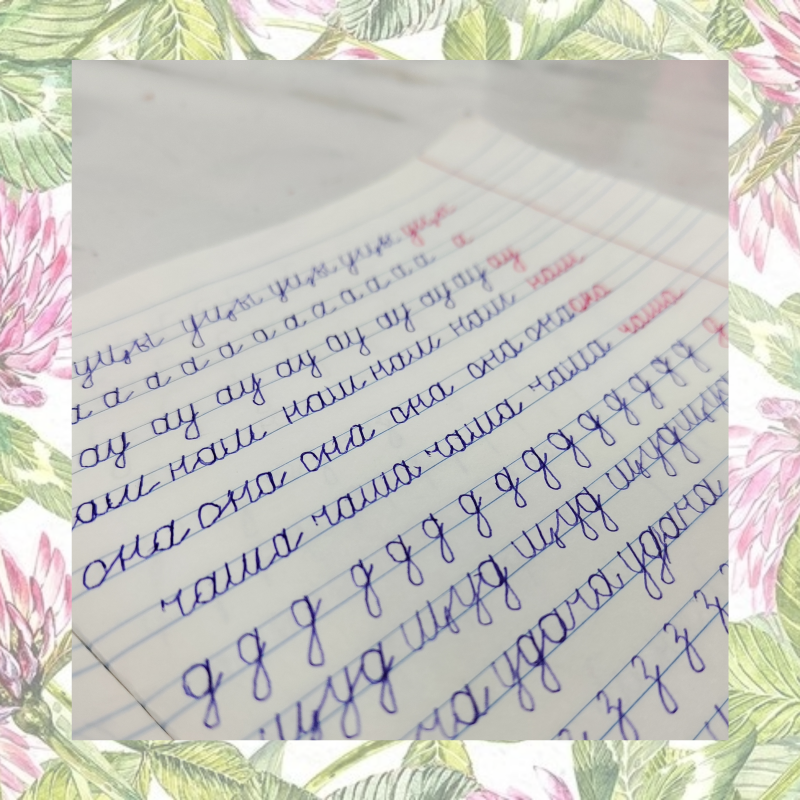 уцы уцы уцы уцы уцы
а а а а а а а а а а а а а
ау ау ау ау ау ау ау ау ау
аш наш наш наш наш наш
она она она она она она она
чаша чаша чаша чаша чаша
д д д д д д д д д д д д д д д д
щуд щуд щуд щуд щу
ча удача удача
з з з з з